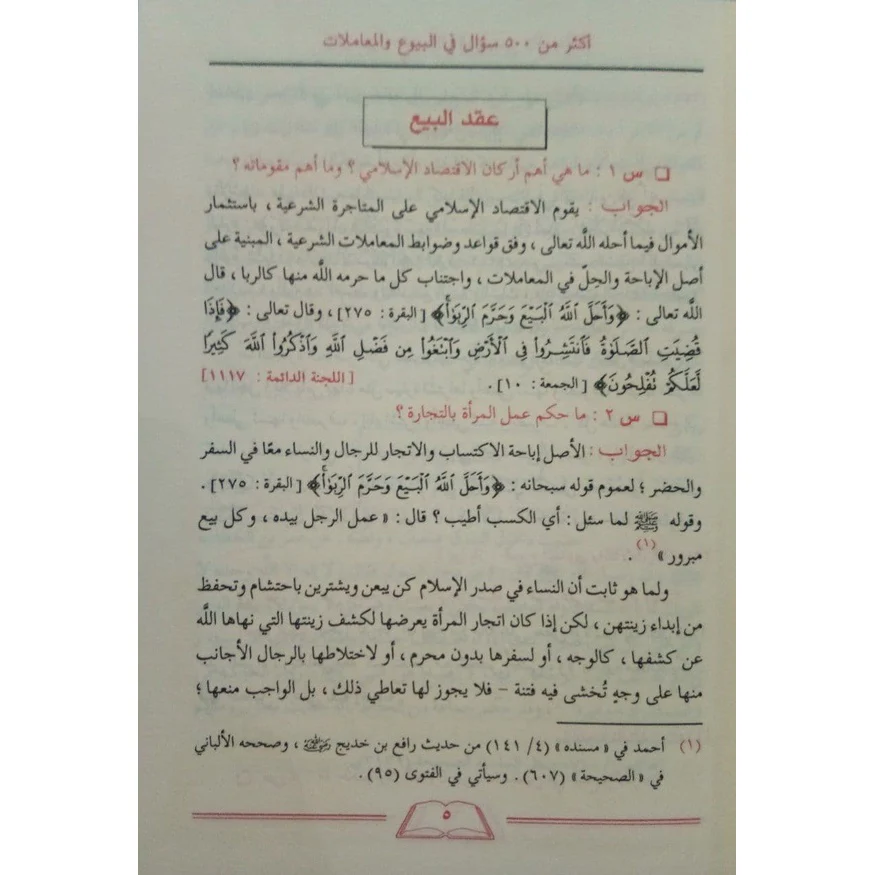 أكثر من ٥٠٠ سؤال في البيوع والمعاملات
عقد البيع
❏ س ١ : ما هي أهم أركان الاقتصاد الإسلامي ؟ وما أهم مقوماته ؟
الجواب : يقوم الاقتصاد الإسلامي على المتاجرة الشرعية ، باستثمار
الأموال فيما أحله اللَّه تعالى ، وفق قواعد وضوابط المعاملات الشرعية ، المبنية على
أصل الإباحة والحِلّ في المعاملات ، واجتناب كل ما حرمه اللَّه منها كالربا ، قال
اللَّه تعالى : ﴿وَأَحَلَّ ٱللَّهُ ٱلْبَيْعَ وَحَرَّمَ ٱلرِّبَوٰاْ﴾ [البقرة : ٢٧٥] ، وقال تعالى : ﴿فَإِذَا
قُضِيَتِ ٱلصَّلَوٰةُ فَٱنتَشِرُواْ فِى ٱلْأَرْضِ وَٱبْتَغُواْ مِن فَضْلِ ٱللَّهِ وَٱذْكُرُواْ ٱللَّهَ كَثِيرًا
لَّعَلَّكُمْ تُفْلِحُونَ﴾ [الجمعة : ١٠] . [اللجنة الدائمة : ١١١٧]
❏ س ٢ : ما حكم عمل المرأة بالتجارة ؟
الجواب : الأصل إباحة الاكتساب والاتجار للرجال والنساء معًا في السفر
والحضر ؛ لعموم قوله سبحانه : ﴿وَأَحَلَّ ٱللَّهُ ٱلْبَيْعَ وَحَرَّمَ ٱلرِّبَوٰاْ﴾ [البقرة : ٢٧٥] .
وقوله ﷺ لما سئل : أي الكسب أطيب ؟ قال : « عمل الرجل بيده ، وكل بيع
مبرور » (١) .
ولما هو ثابت أن النساء في صدر الإسلام كن يبعن ويشترين باحتشام وتحفظ
من إبداء زينتهن ، لكن إذا كان اتجار المرأة يعرضها لكشف زينتها التي نهاها اللَّه
عن كشفها ، كالوجه ، أو لسفرها بدون محرم ، أو لاختلاطها بالرجال الأجانب
منها على وجهٍ تُخشى فيه فتنة – فلا يجوز لها تعاطي ذلك ، بل الواجب منعها ؛
(١) أحمد في « مسنده » (٤/ ١٤١) من حديث رافع بن خديج رضي الله عنه ، وصححه الألباني
في « الصحيحة » (٦٠٧) . وسيأتي في الفتوى (٩٥) .
٥